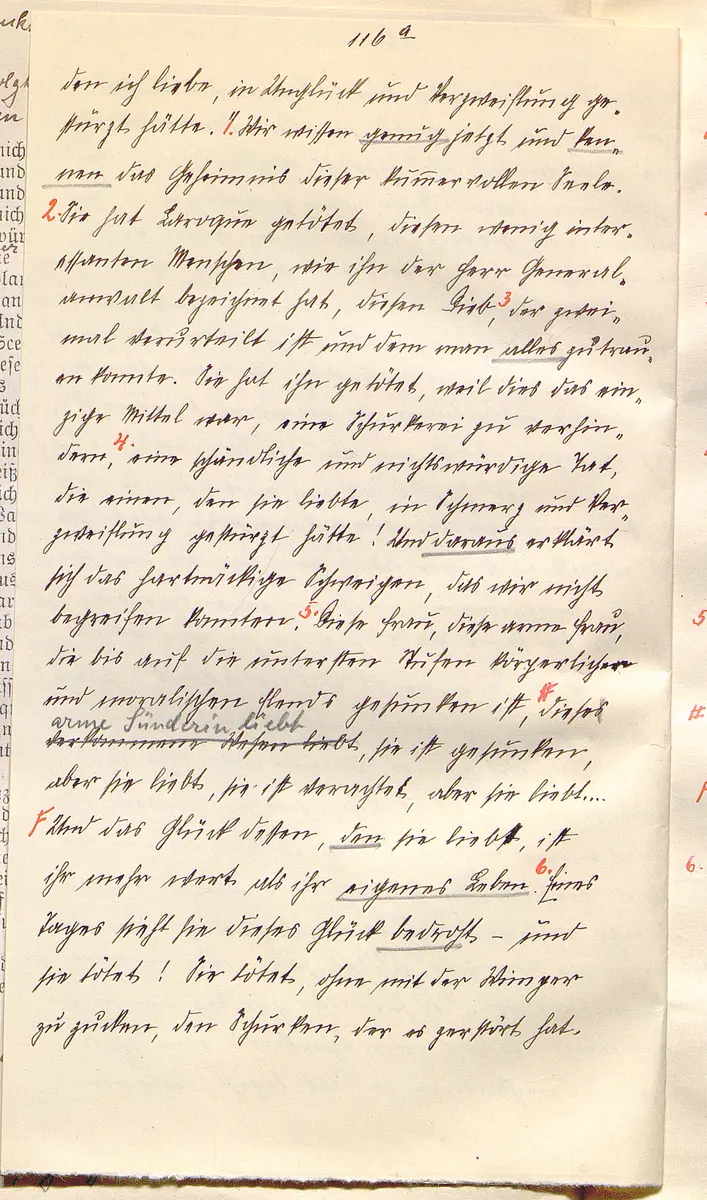 116 a
den ich liebe, in Unglück und Verzweiflung ge-
stürzt hätte. 1. Wir wissen genug jetzt und ken-
nen das Geheimnis dieser kummervollen Seele.
2. Sie hat Laroque getötet, diesen wenig inter-
essanten Menschen, wie ihn der Herr General-
anwalt bezeichnet hat, diesen Dieb, 3 der zwei-
mal verurteilt ist und dem man alles zutrau-
en konnte. Sie hat ihn getötet, weil dies das ein-
zige Mittel war, eine Schurkerei zu verhin-
dern, 4. eine schändliche und nichtswürdige Tat,
die einen, den sie liebte, in Schmerz und Ver-
zweiflung gestürzt hätte! Und daraus erklärt
sich das hartnäckige Schweigen, das wir nicht
begreifen konnten. 5. Diese Frau, diese arme Frau,
die bis auf die untersten Stufen körperlichen
und moralischen Elends gesunken ist, # dieses
arme Sünderin liebt
verkommene Wesen liebt, sie ist gesunken,
aber sie liebt, sie ist verachtet, aber sie liebt....
Und das Glück dessen, den sie liebt, ist
ihr mehr wert als ihr eigenes Leben. 6. Eines
Tages sieht sie dieses Glück bedroht – und
sie tötet! Sie tötet, ohne mit der Wimper
zu zucken, den Schurken, der es zerstört hat.
5
#
6.